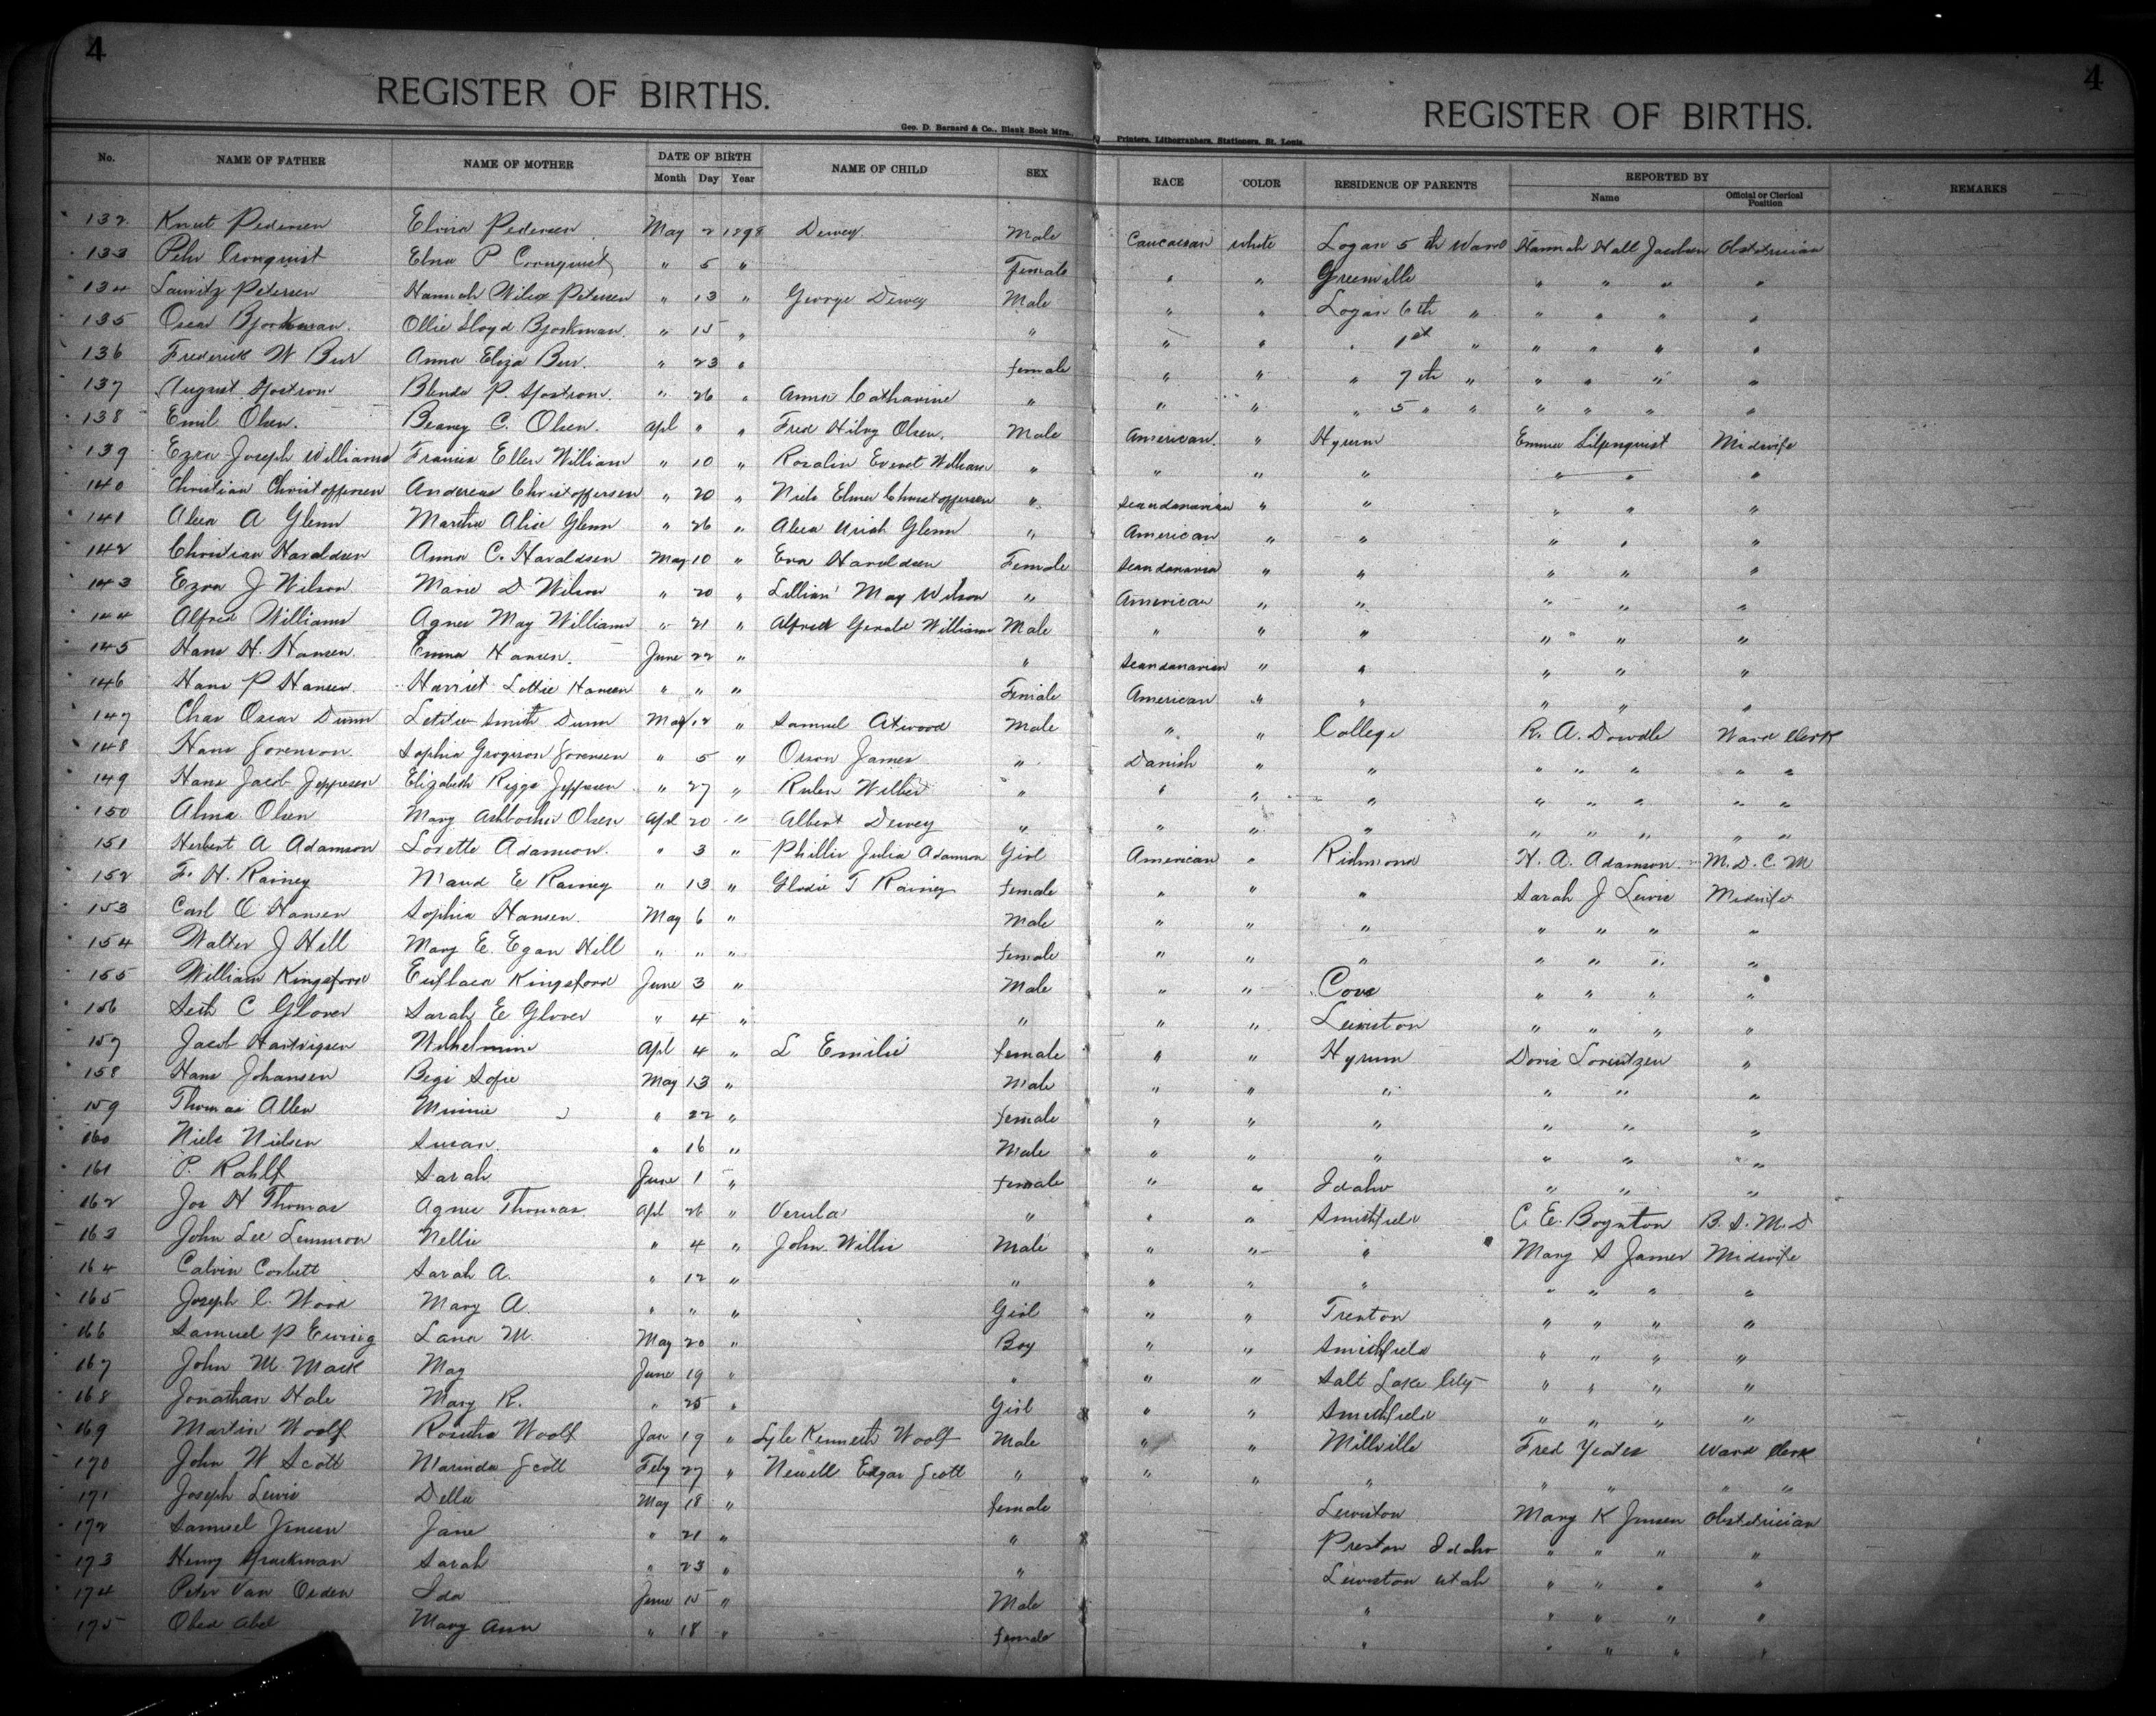 4
4
REGISTER OF BIRTHS.
REGISTER OF BIRTHS.
Geo. D. Barnard & Co., Blank Book Mfrs.,
Printers, Lithographers, Stationers, St. Louis.
No. NAME OF FATHER NAME OF MOTHER DATE OF BIRTH NAME OF CHILD SEX RACE COLOR RESIDENCE OF PARENTS REPORTED BY REMARKS
Month Day Year Name Official or Clerical Position
132 Knut Pedersen Elvira Pedersen May 2 1898 Dewey Male Caucasian white Logan 5th Ward Hannah Hall Jacobsen Obstetrician
133 Cronquist Elna P Cronquist " 5 " Female " " Greenville " " " "
134 Lauritz Petersen Hannah Wilcox Petersen " 13 " George Dewey Male " " Logan 6th " " " " "
135 Oscar Bjorkman. Ollie Lloyd Bjorkman. " 15 " " " " " 1st " " " " "
136 Frederick W Bur Anna Eliza Bur. " 23 " female " " " 7th " " " " "
137 August Sjostrom Blenda P. Sjostrom. " 26 " Anna Catharine " " " " 5 " " " " " "
138 Emil Olsen. C. Olsen. apl " " Fred Olsen. Male American. " Hyrum Emma Liljenquist Midwife
139 Ezra Joseph Williams Francis Ellen William " 10 " Rosalin Everet William " " " " " "
140 Christian Christoffersen Andereas Christoffersen " 20 " Niels Elmer Christoffersen " Scandanavian " " " " "
141 Alexa A Glenn Martha Alice Glenn " 26 " Alexa Uriah Glenn " American " " " " "
142 Christian Haraldsen Anna C. Haraldsen May 10 " Eva Haraldsen Female Scandanavia " " " " "
143 Ezra J Wilson. Marie D Wilson " 20 " Lillian May Wilson " American " " " " "
144 Alfred Williams Agnes May Williams " 21 " Alfred Gerald Williams Male " " " " " "
145 Hans H. Hansen. Emma Hansen. June 22 " " Scandanavian " " " " "
146 Hans P Hansen. Harriet Lottie Hansen " " " Female American " " " " "
147 Chas Oscar Dunn Letitia Smith Dunn May 12 " Samuel Atwood Male " " College R. A. Dowdle Ward Clerk
148 Hans Sorenson Sophia Sorensen " 5 " Orson James " Danish " " " " " " "
149 Hans Jacob Jeppesen Elizabeth Riggs Jeppesen " 27 " Ruben Wilber " " " " " " " " "
150 Alma Olsen Mary Olsen apl 20 " Albert Dewey " " " " " " " " "
151 Herbert A Adamson Lorette Adamson. " 3 " Phillis Julia Adamson Girl American " Richmond H. A. Adamson M. D. C. M
152 F. H. Rainey Maud E Rainey " 13 " T Rainey female " " " Sarah J Lewis Midwife
153 Carl O Hansen Sophia Hansen. May 6 " Male " " " " " " "
154 Walter J Hill Mary E. Egan Hill " " " female " " " " " " "
155 William Kingsford Kingsford June 3 " Male " " Cove " " " "
156 Seth C Glover Sarah E Glover " 4 " " " " Lewiston " " " "
157 Jacob Hartvigsen Wilhelmine Apl 4 " L Emilie female " " Hyrum Doris Lorentzen "
158 Hans Johansen Sofie May 13 " Male " " " " " "
159 Thomas Allen Minnie " 22 " female " " " " " "
160 Niels Nielsen Susan. " 16 " Male " " " " " "
161 P. Rahlf Sarah June 1 " female " " Idaho " " "
162 Jos H Thomas Agnes Thomas. Apl 26 " Verula " " " Smithfield C. E. Boynton B. S. M. D
163 John Lee Lemmon Nellie " 4 " John Willis Male " " " Mary S James Midwife
164 Calvin Corbett Sarah A. " 12 " " " " " " " " "
165 Joseph C. Wood Mary A. " " " Girl " " Trenton " " " "
166 Samuel P Ewing Lana M. May 20 " Boy " " Smithfield " " " "
167 John M. Mack May June 19 " " " " Salt Lake City " " " "
168 Jonathan Hale Mary R. " 25 " Girl " " Smithfield " " " "
169 Martin Woolf Rozetta Woolf Jan 19 " Lyle Kenneth Woolf Male " " Millville Fred Yeates Ward Clerk
170 John W Scott Marinda Scott Feby 27 " Newell Edgar Scott " " " " " " " "
171 Joseph Lewis Della May 18 " female Lewiston Mary K Jensen Obstetrician
172 Samuel Jensen Jane " 21 " " Preston Idaho " " " "
173 Henry Sarah " 23 " " Lewiston Utah " " " "
174 Peter Van Orden Ida June 15 " Male " " " " "
175 Obed Abel Mary Ann " 18 " female " " " " "